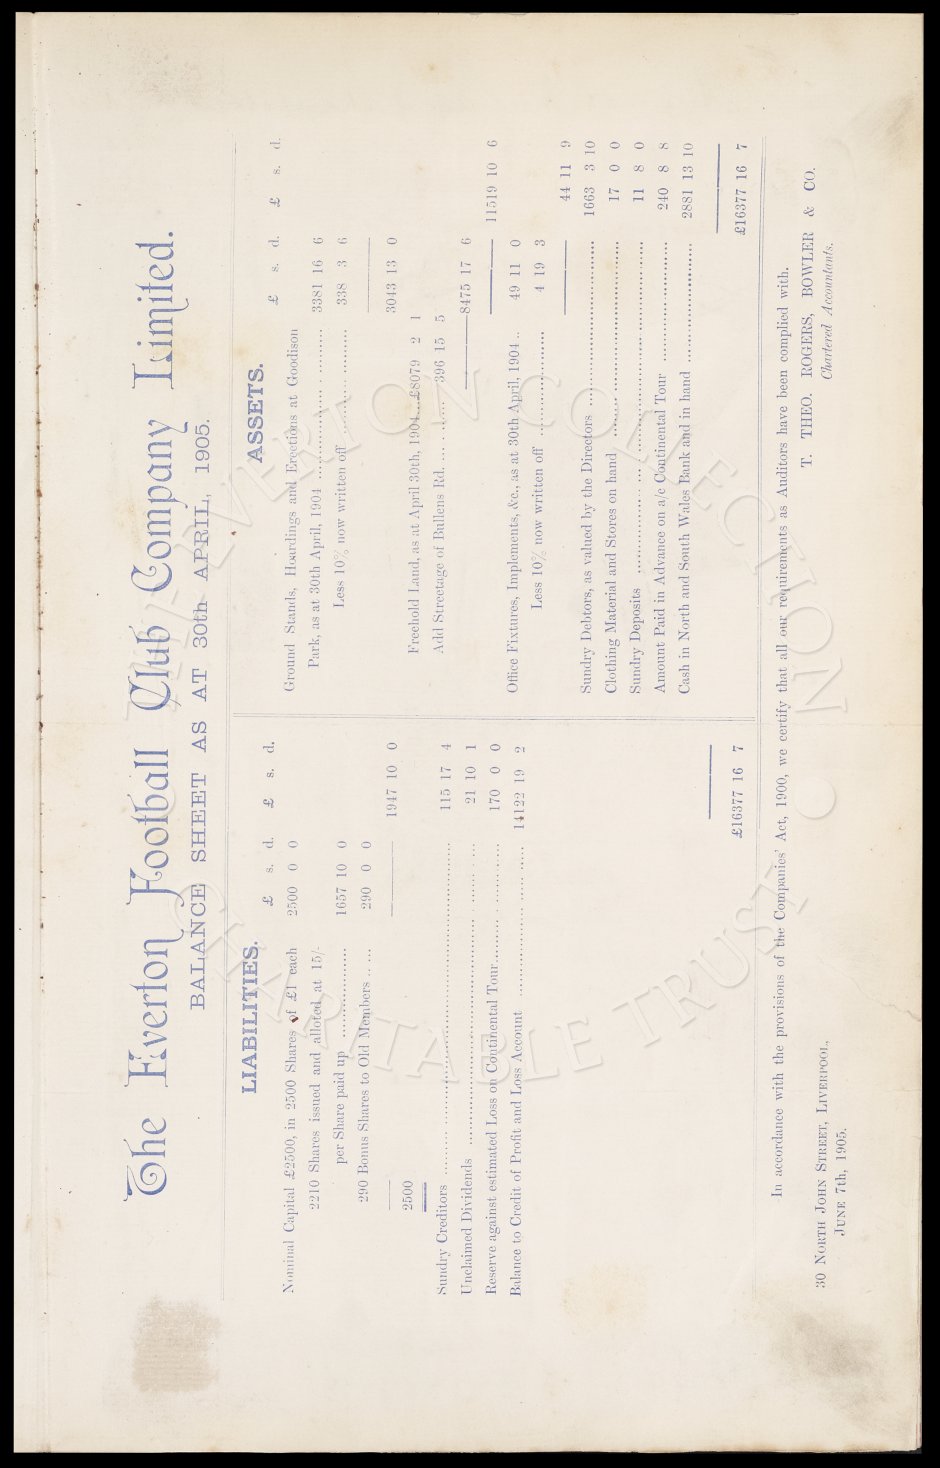 The Everton Football Club Company Limited.
BALANCE SHEET AS AT 30th APRIL, 1905.
LIABILITIES.
£ s. d. £ s. d.
Nominal Capital £2500, in 2500 Shares of £1 each 2500 0 0
2210 Shares issued and alloted at 15/-
per Share paid up .................... 1657 10 0
290 Bonus Shares to Old Members ..... 290 0 0
2500 1947 10 0
Sundry Creditors .................... 115 17 4
Unclaimed Dividends .................... 21 10 1
Reserve against estimated Loss on Continental Tour.......... 170 0 0
Balance to Credit of Profit and Loss Account .................... 14122 19 2
£16377 16 7
ASSETS.
£ s. d. £ s. d.
Ground Stands, Hoardings and Erections at Goodison
Park, as at 30th April, 1904 .................... 3381 16 6
Less 10% now written off .................... 338 3 6
3043 13 0
Freehold Land, as at April 30th, 1904....£8079 2 1
Add Streetage of Bullens Rd. .......... 396 15 5
8475 17 6
11519 10 6
Office Fixtures, Implements, &c., as at 30th April, 1904.. 49 11 0
Less 10% now written off .................... 4 19 3
44 11 9
Sundry Debtors, as valued by the Directors .................... 1663 3 10
Clothing Material and Stores on hand .................... 17 0 0
Sundry Deposits .................... 11 8 0
Amount Paid in Advance on a/c Continental Tour .................... 240 8 8
Cash in North and South Wales Bank and in hand .................... 2881 13 10
£16377 16 7
In accordance with the provisions of the Companies' Act, 1900, we certify that all our requirements as Auditors have been complied with.
T. THEO. ROGERS, BOWLER & CO.
Chartered Accountants.
30 NORTH JOHN STREET, LIVERPOOL,
JUNE 7th, 1905.
THE EVERTON COLLECTION • CHARITABLE TRUST •